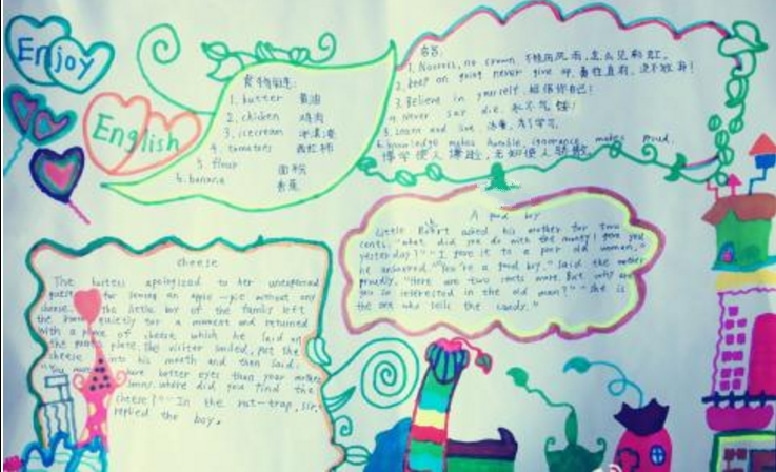 Enjoy
English
食物单词:
1. butter 黄油
2. chicken 鸡肉
3. icecream 冰淇淋
4. tomatoes 西红柿
5. flour 面粉
6. banana 香蕉
名言:
1. No cross, no crown 不经历风雨,怎么见彩虹.
2. keep on going never give up. 勇往直前,决不放弃!
3. Believe in yourself. 相信你自己!
4. Never say die. 永不气馁!
5. Learn and live 活着,为了学习.
6. knowledge makes humble, ignorance makes proud.
博学使人谦逊,无知使人骄傲
A good boy
Little Robert asked his mother for two
cents. "what did you do with the money I gave you
yesterday?" "I gave it to a poor old woman,"
he answered. "You're a good boy." Said the mother
proudly. "Here are two cents more. But why are
you so interested in the old man?" "She is
the one who sells the candy."
cheese
The hostess apologized to her unexpected
guest for serving an apple-pie without any
cheese. The little boy of the family left
the room quietly for a moment and returned
with a piece of cheese which he laid on
the plate. The visitor smiled, put the
cheese into his mouth and then said:
"You must have better eyes than your mother,
sonny. where did you find the
cheese?" "In the rat-trap, sir,"
replied the boy.